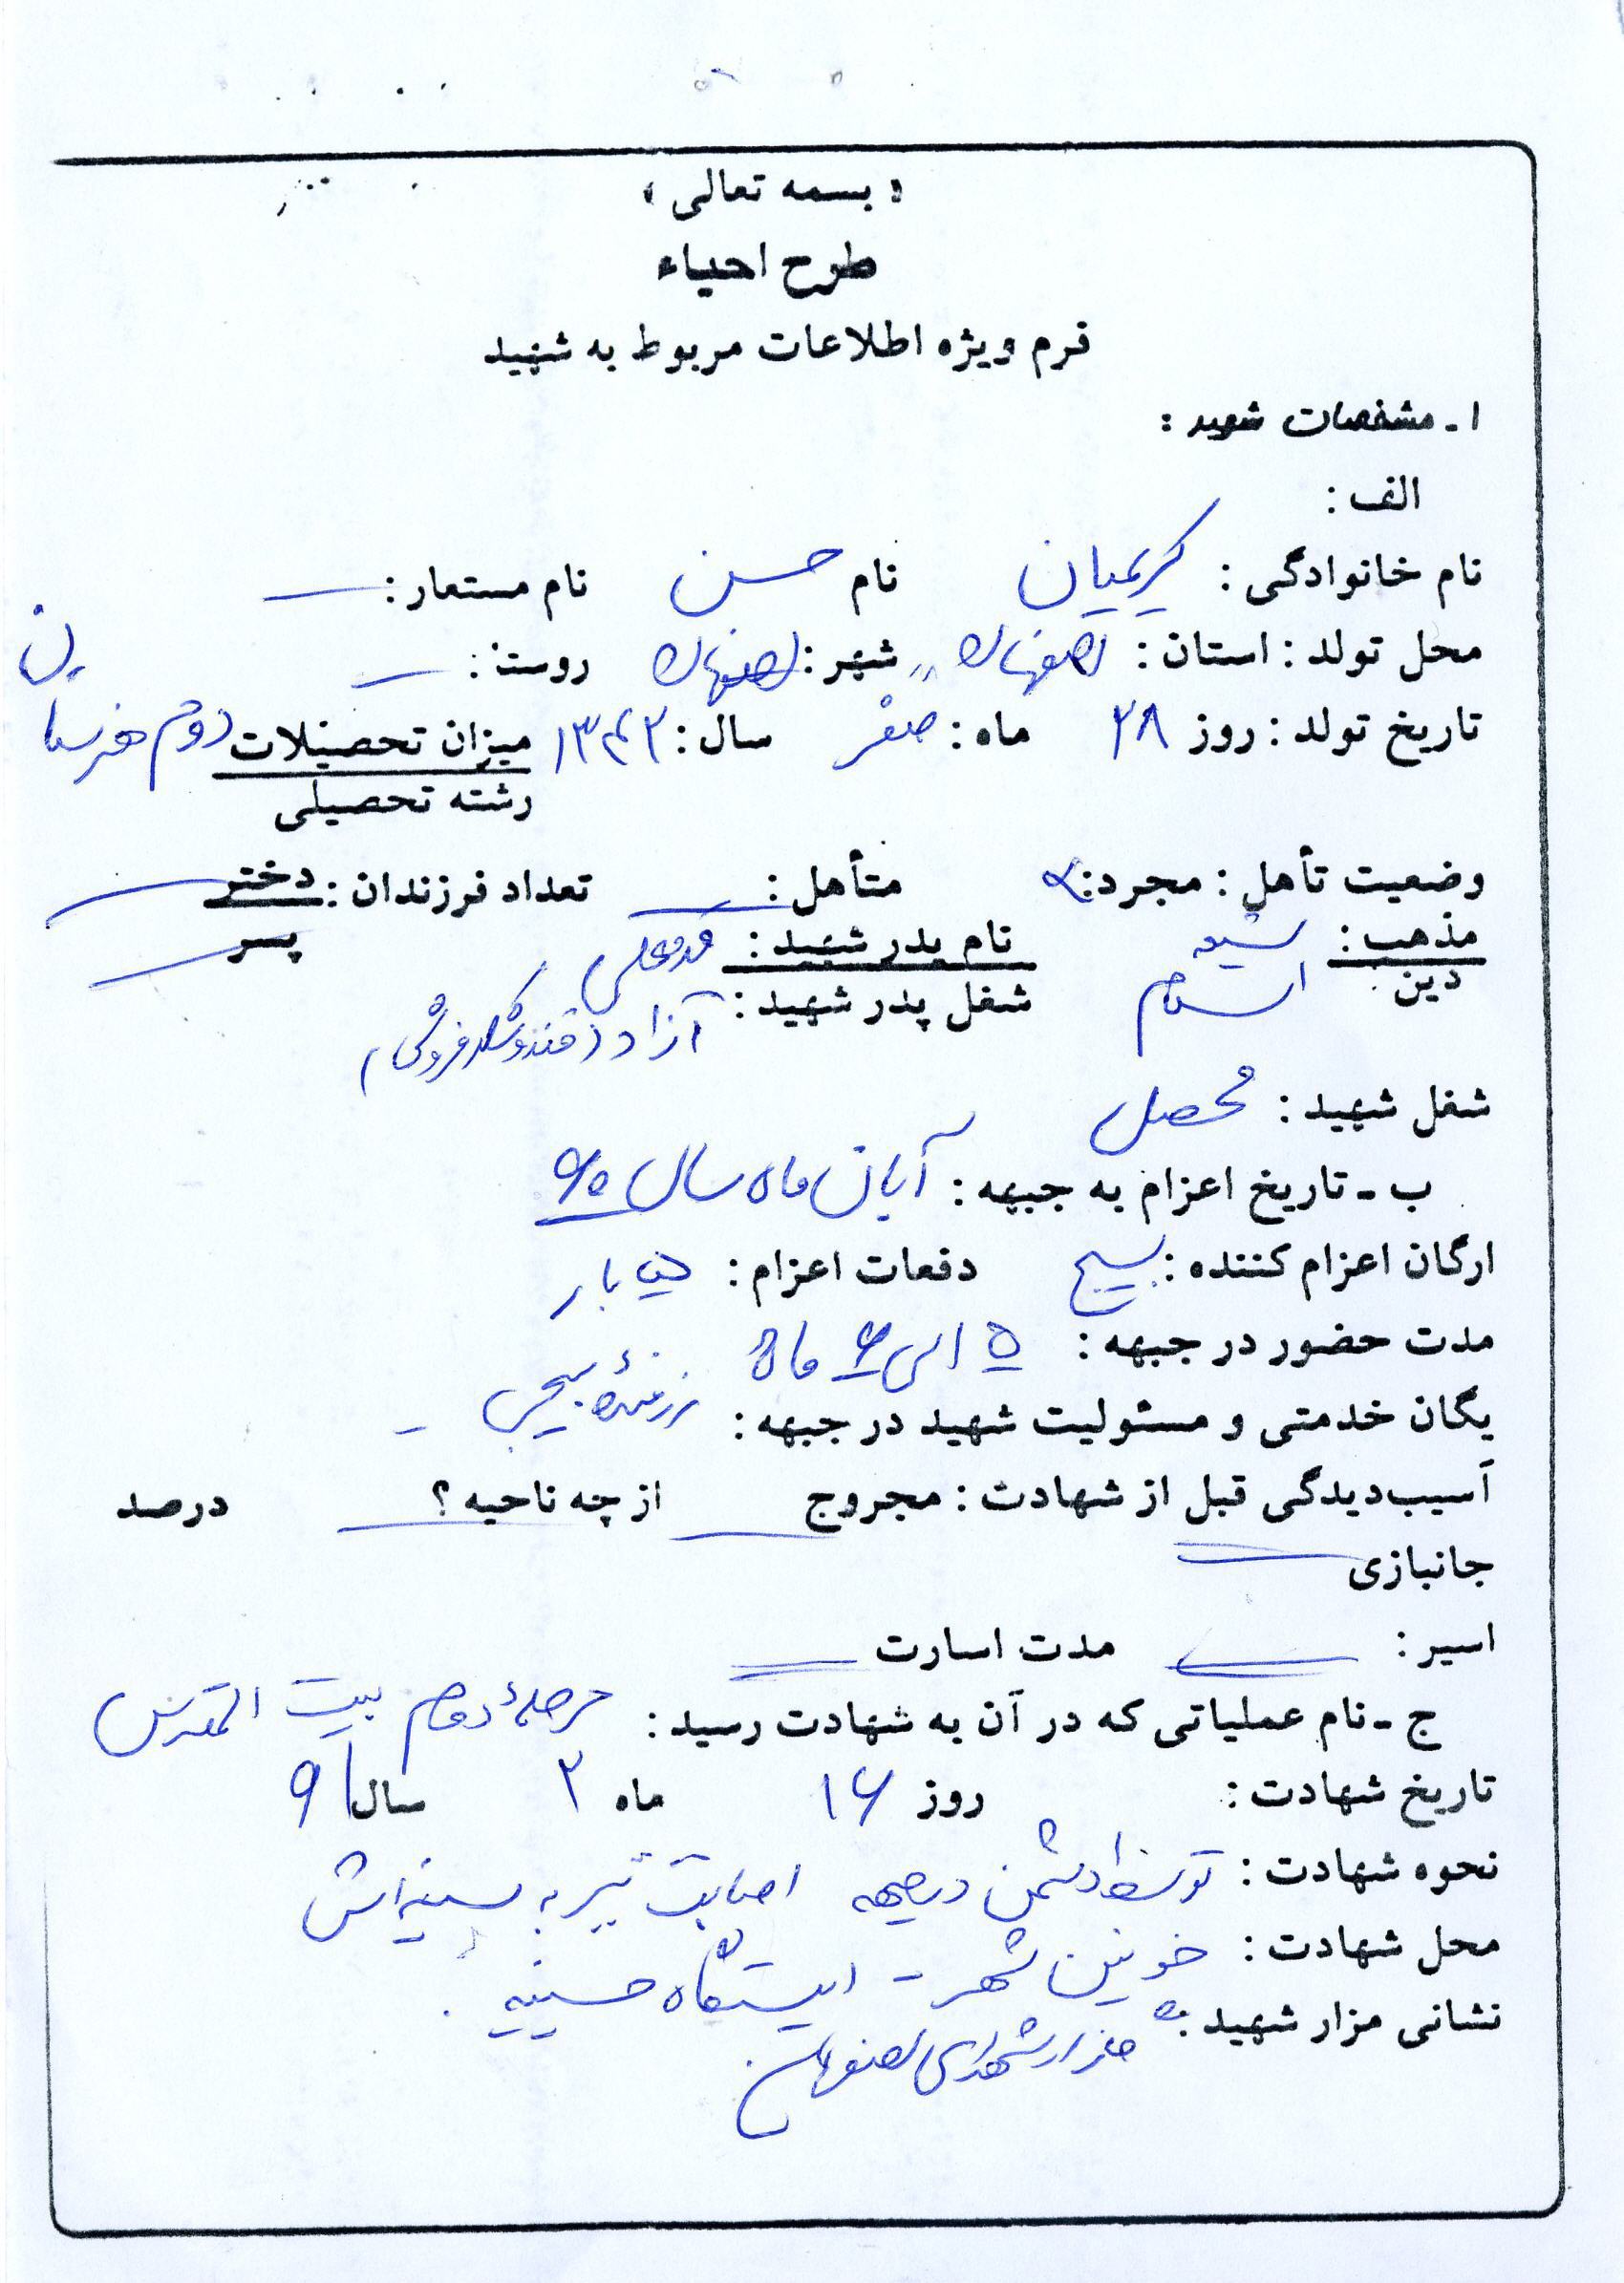 « بسمه تعالی »
طرح احیاء
فرم ویژه اطلاعات مربوط به شهید
۱ ـ مشخصات شهید :
الف :
نام خانوادگی : کریمیان نام حسن نام مستعار : ــ
محل تولد : استان : اصفهان شهر : اصفهان روستا : ــ
تاریخ تولد : روز ۲۸ ماه : صفر سال : ۱۳۴۳ میزان تحصیلات دوم هنرستان
رشته تحصیلی
وضعیت تأهل : مجرد : متأهل : ــ تعداد فرزندان : دختر ــ
پسر ــ
مذهب : شیعه نام پدر شهید :
دین : اسلام شغل پدر شهید : آزاد ( قندوشکرفروشی )
شغل شهید : محصل
ب ـ تاریخ اعزام به جبهه : آبان ماه سال ۶۰
ارگان اعزام کننده : بسیج دفعات اعزام : بار
مدت حضور در جبهه : ۵ الی ۶ ماه
یگان خدمتی و مسئولیت شهید در جبهه : رزمندهٔ بسیجی ــ
آسیب‌دیدگی قبل از شهادت : مجروح ــ از چه ناحیه ؟ ــ درصد
جانبازی ــ
اسیر : ــ مدت اسارت ــ
ج ـ نام عملیاتی که در آن به شهادت رسید : مرحلهٔ دوم بیت المقدس
تاریخ شهادت : روز ۱۶ ماه ۲ سال ۶۱
نحوه شهادت : توسط دشمن درجبهه اصابت تیر به سینه‌اش
محل شهادت : خونین شهر - ایستگاه حسینیه .
نشانی مزار شهید : مزار شهدای اصفهان